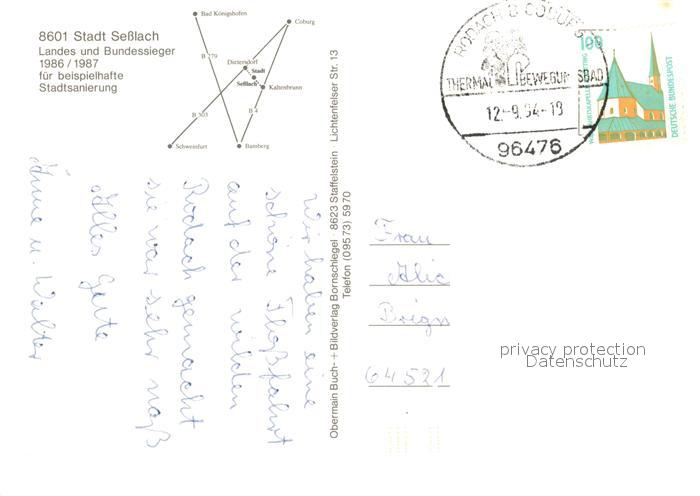 8601 Stadt Seßlach
Landes und Bundessieger
1986 / 1987
für beispielhafte
Stadtsanierung
Bad Königshofen
Coburg
B 279
Dietersdorf
Stadt
Seßlach
Kaltenbrunn
B 303
B 4
Schweinfurt
Bamberg
Wir haben eine
schöne Floßfahrt
auf der wilden
Rodach gemacht
sie war sehr naß
Alles Gute
Anna u. Walter
Obermain Buch- + Bildverlag Bornschlegel · 8623 Staffelstein · Lichtenfelser Str. 13
Telefon (09573) 5970
RODACH B COBURG
THERMAL BEWEGUNGSBAD
12.-9.94-19
96476
100
DEUTSCHE BUNDESPOST
Frau
64521
privacy protection
Datenschutz